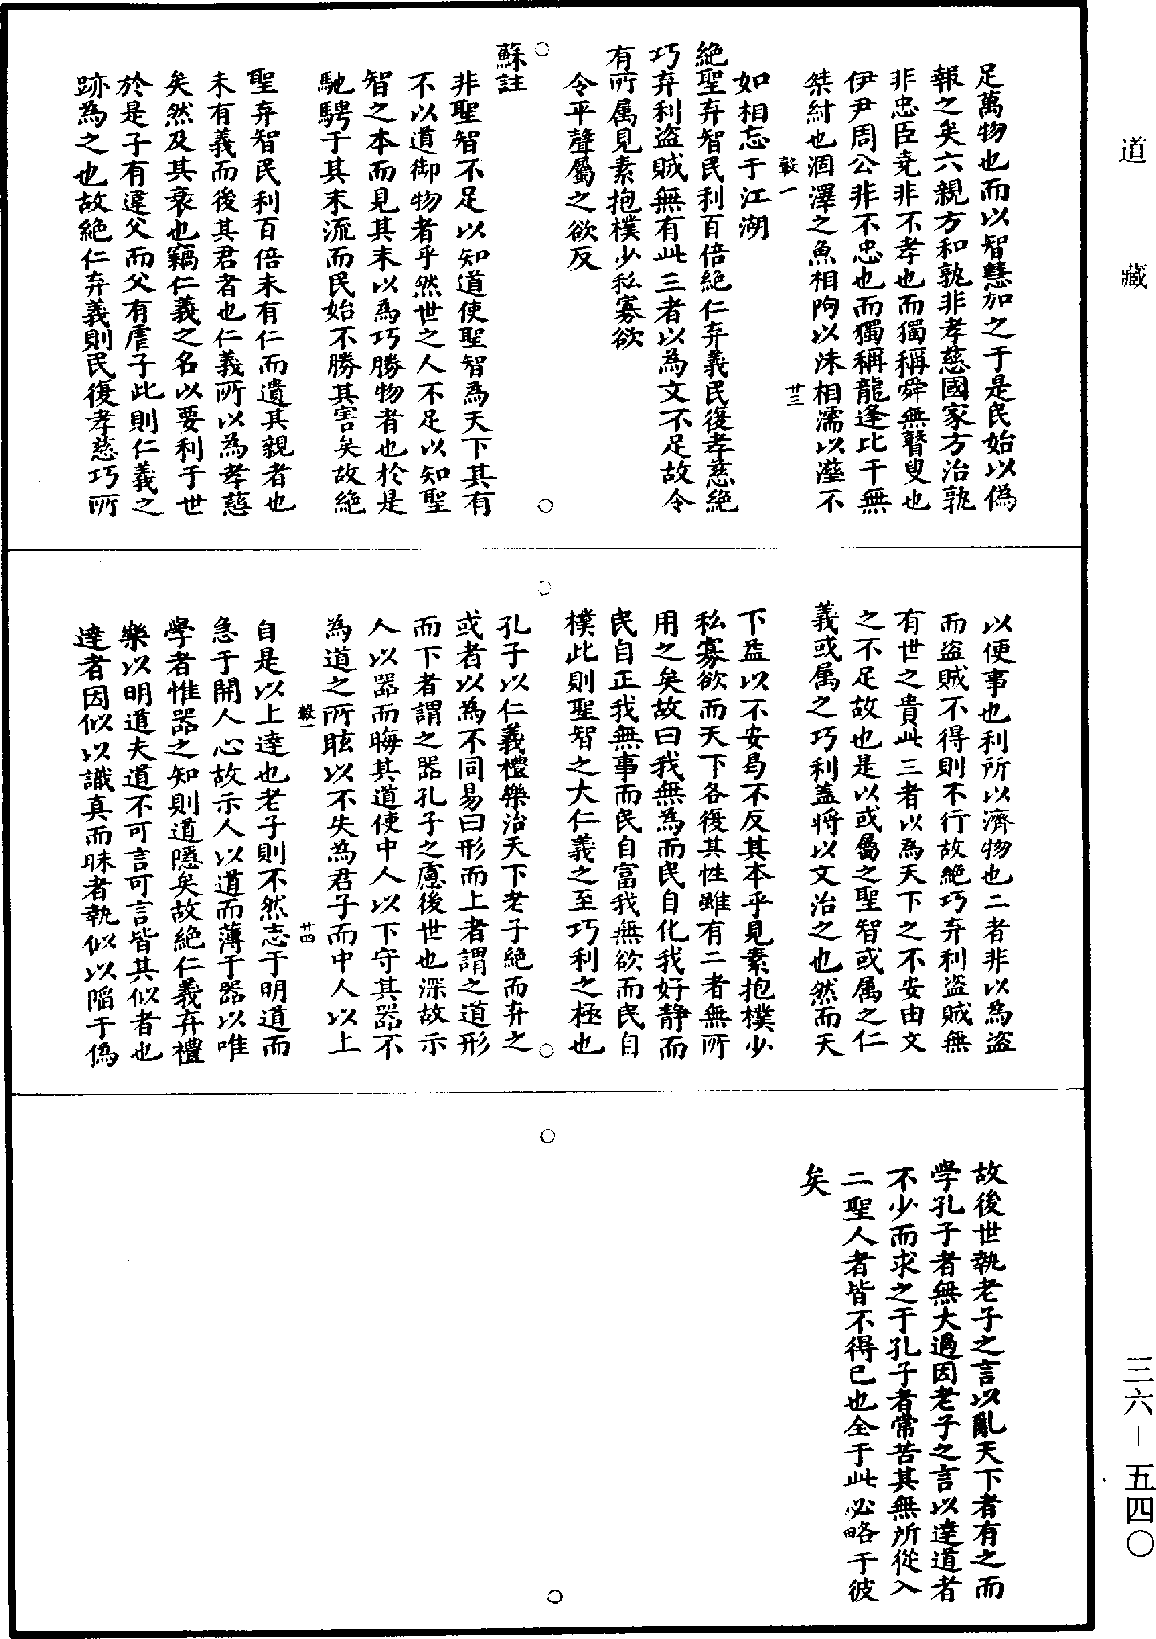 道藏
足萬物也而以智慧加之于是民始以偽
報之矣六親方和孰非孝慈國家方治孰
非忠臣堯非不孝也而獨稱舜無瞽叟也
伊尹周公非不忠也而獨稱龍逢比干無
桀紂也涸澤之魚相呴以沫相濡以溼不
如相忘于江湖
絶聖弃智民利百倍絶仁弃義民復孝慈絶
巧弃利盗賊無有此三者以為文不足故令
有所属見素抱樸少私寡欲
令平聲屬之欲反
蘇註
非聖智不足以知道使聖智為天下其有
不以道御物者乎然世之人不足以知聖
智之本而見其末以為巧勝物者也於是
馳騁于其末流而民始不勝其害矣故絶
聖弃智民利百倍未有仁而遺其親者也
未有義而後其君者也仁義所以為孝慈
矣然及其衰也竊仁義之名以要利于世
於是子有違父而父有虐子此則仁義之
跡為之也故絶仁弃義則民復孝慈巧所
廿三
以便事也利所以濟物也二者非以為盗
而盗賊不得則不行故絶巧弃利盗賊無
有世之貴此三者以為天下之不安由文
之不足故也是以或屬之聖智或属之仁
義或属之巧利蓋將以文治之也然而天
下益以不安曷不反其本乎見素抱樸少
私寡欲而天下各復其性雖有三者無所
用之矣故曰我無為而民自化我好静而
民自正我無事而民自富我無欲而民自
樸此則聖智之大仁義之至巧利之極也
孔子以仁義禮樂治天下老子絶而弃之
或者以為不同易曰形而上者謂之道形
而下者謂之器孔子之慮後世也深故示
人以器而晦其道使中人以下守其器不
為道之所眩以不失為君子而中人以上
自是以上達也老子則不然志于明道而
急于開人心故示人以道而薄于器以唯
學者惟器之知則道隱矣故絶仁義弃禮
樂以明道夫道不可言可言皆其似者也
達者因似以識真而昧者執似以陷于偽
廿四
故後世執老子之言以亂天下者有之而
學孔子者無大過因老子之言以達道者
不少而求之于孔子者常苦其無所從入
二聖人者皆不得已也全于此必略于彼
矣
三六－五四〇